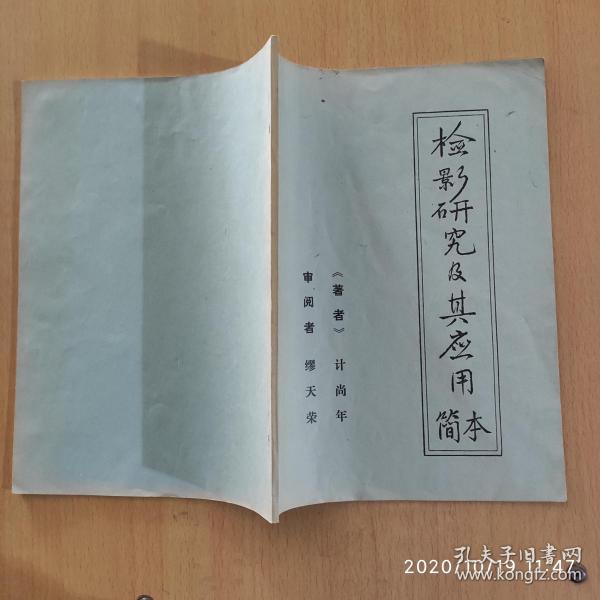 检影研究及其应用
简本
《著者》 计尚年
审阅者 缪天荣
2020/10/19 11:47
孔夫子旧书网
www.kongfz.com